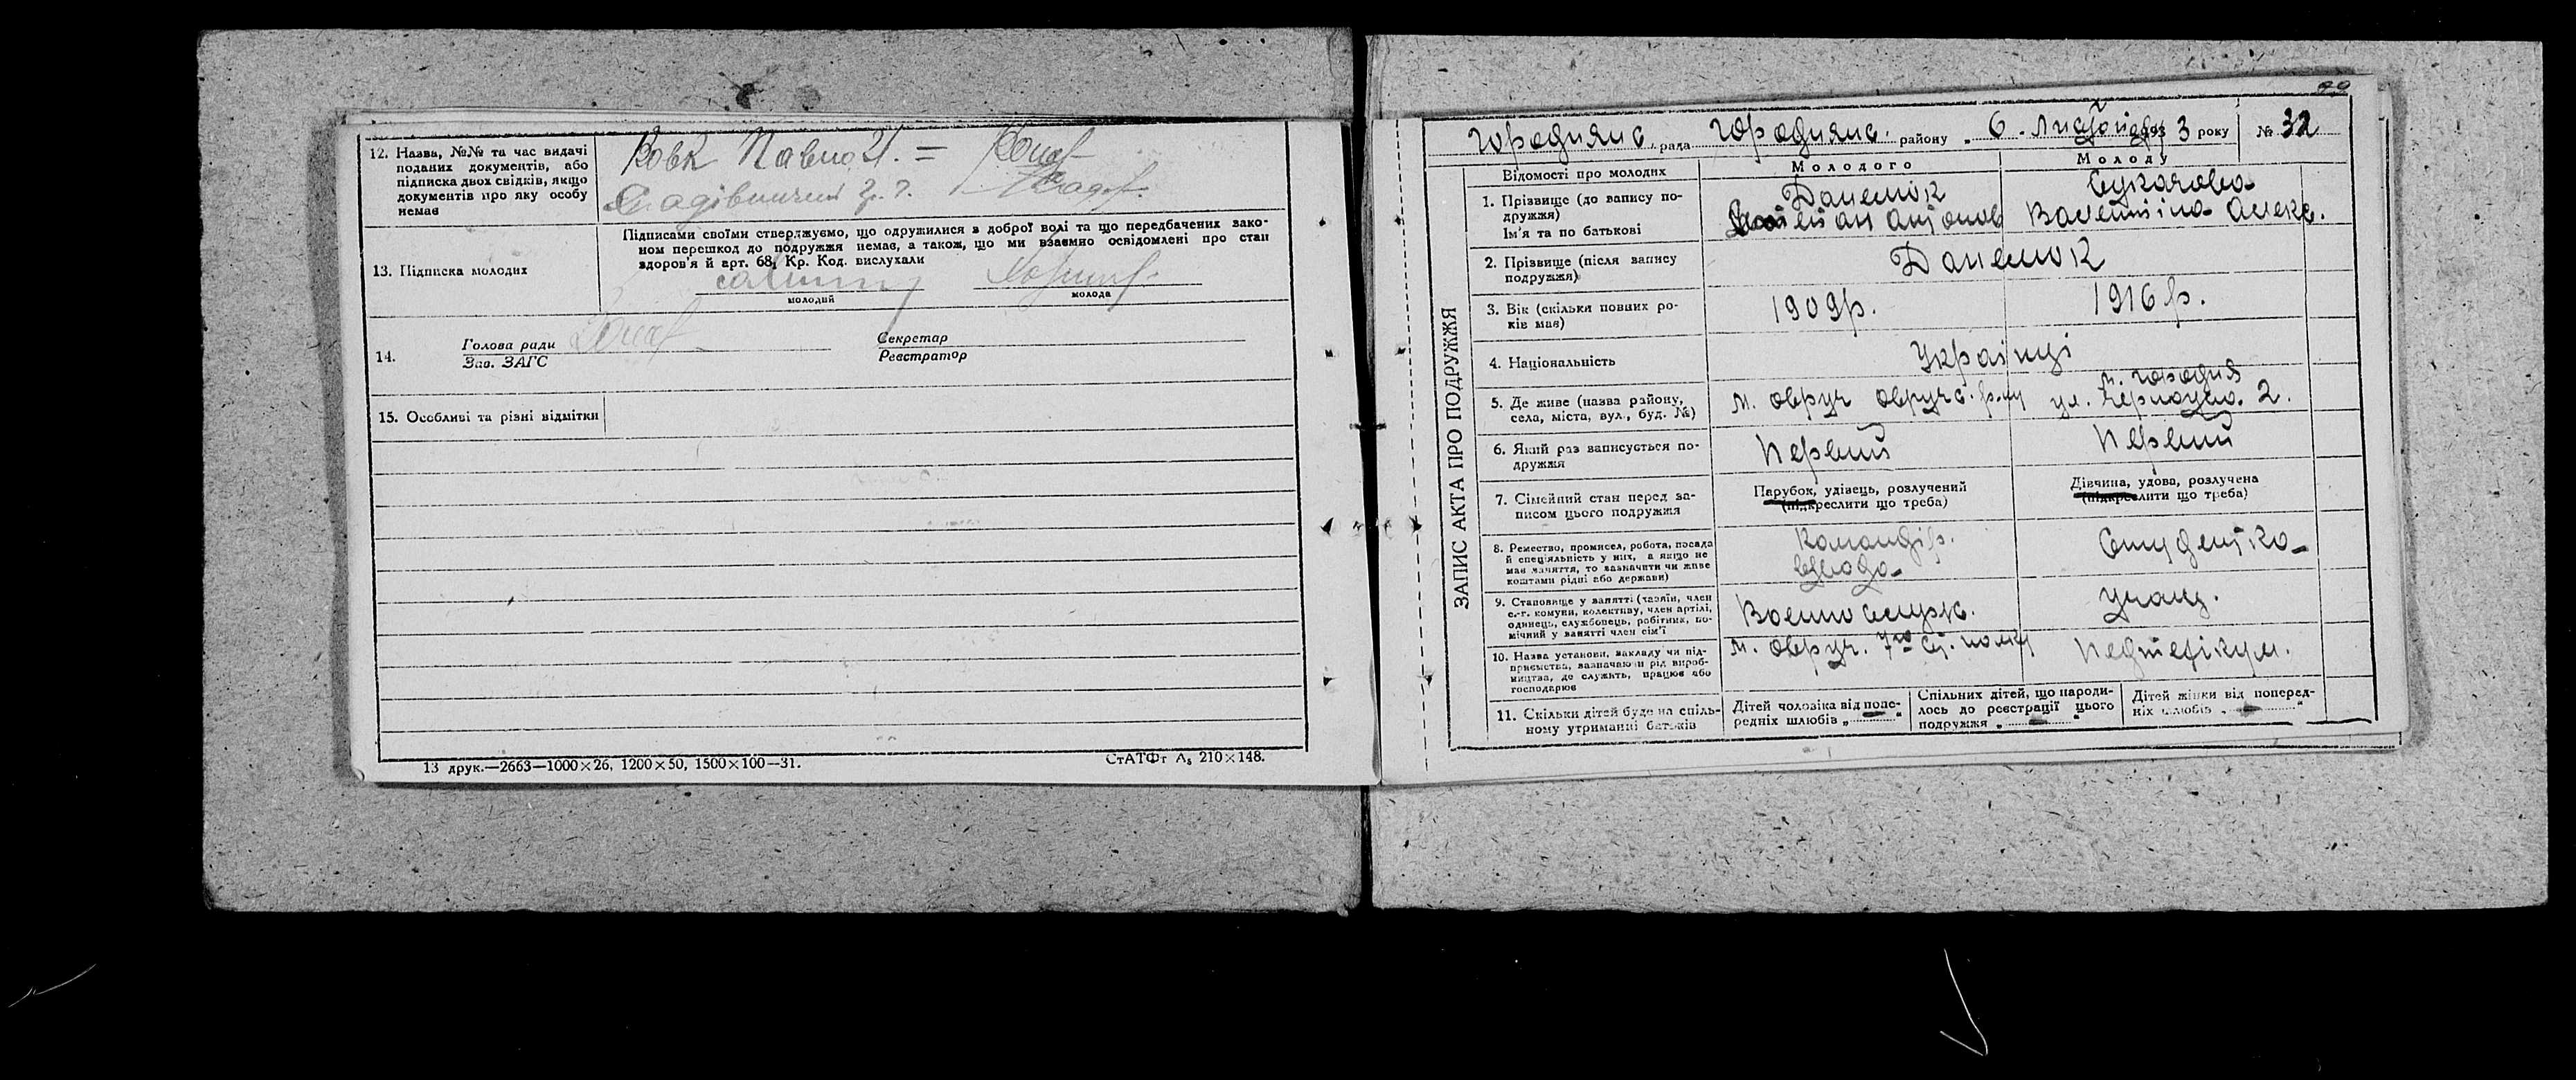 12. Назва, №№ та час видачі
поданих документів, або
підписка двох свідків, якщо
документів про яку особу
немає
Вовк Павло
13. Підписка молодих
Підписами своїми стверджуємо, що одружилися з доброї волі та що передбачених зако-
ном перешкод до подружжя немає, а також, що ми взаємно освідомлені про стан
здоров'я й арт. 68, Кр. Код. вислухали
молодий
молода
14.
Голова ради
Зав. ЗАГС
Секретар
Реєстратор
15. Особливі та різні відмітки
13 друк.—2663—1000×26, 1200×50, 1500×100—31.
СтАТФт А₅ 210×148.
99
Городнянс. рада Городнянс. району „ 6 . 193 3 року № 32
ЗАПИС АКТА ПРО ПОДРУЖЖЯ
Відомості про молодих
Молодого
Молоду
1. Прізвище (до запису по-
дружжя)
Ім'я та по батькові
Данелюк
Антонов
Сукачова
Валентіна Алекс.
2. Прізвище (після запису
подружжя)
Данелюк
3. Вік (скільки повних ро-
ків має)
1909р.
1916 р.
4. Національність
Українці
5. Де живе (назва району,
села, міста, вул., буд. №)
м. Овруч Овруч. р-ну
м. Городня
ул. 2.
6. Який раз записується по-
дружжя
Первий
Первий
7. Сімейний стан перед за-
писом цього подружжя
Парубок, удівець, розлучений
(підкреслити що треба)
Дівчина, удова, розлучена
(підкреслити що треба)
8. Ремество, промисел, робота, посада
й спеціяльність у них, а якщо не
має заняття, то зазначити чи живе
коштами рідні або держави)
Командір.
взвода
Студентка
9. Становище у занятті (хазяїн, член
с.-г. комуни, колективу, член артілі,
одинець, службовець, робітник, по-
мічний у занятті член сім'ї
Военнослуж.
учащ.
10. Назва установи, закладу чи під-
приємства, зазначаючи рід вироб-
ництва, де служить, працює або
господарює
м. Овруч. полку
Педтехнікум.
11. Скільки дітей буде на спіль-
ному утриманні батьків
Дітей чоловіка від попе-
редніх шлюбів „ — “
Спільних дітей, що народи-
лось до реєстрації цього
подружжя „ — “
Дітей жінки від поперед-
ніх шлюбів „ — “